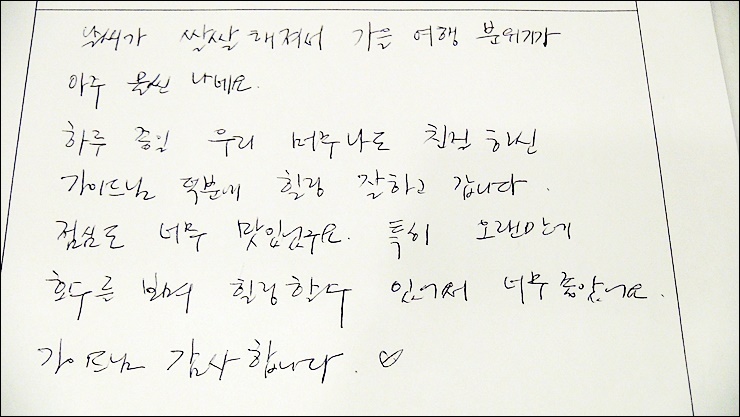 날씨가 쌀쌀해져서 가을 여행 분위기가
아주 물씬 나네요.
하루 종일 우리 너무나도 친절하신
가이드님 덕분에 힐링 잘하고 갑니다.
점심도 너무 맛있었구요. 특히 오랜만에
보며 힐링할 수 있어서 너무 좋았어요.
가이드님 감사합니다. ♡